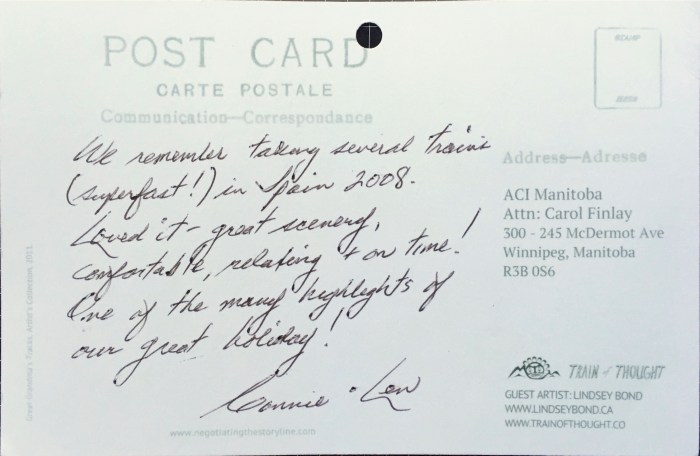 POST CARD
CARTE POSTALE
Communication—Correspondance
We remember taking several trains
(superfast!) in Spain 2008.
Loved it - great scenery,
comfortable, relaxing + on time!
One of the many highlights of
our great holiday!
Connie + Len
www.negotiatingthestoryline.com
Address—Adresse
ACI Manitoba
Attn: Carol Finlay
300 - 245 McDermot Ave
Winnipeg, Manitoba
R3B 0S6
TRAIN of THOUGHT
GUEST ARTIST: LINDSEY BOND
WWW.LINDSEYBOND.CA
WWW.TRAINOFTHOUGHT.CO